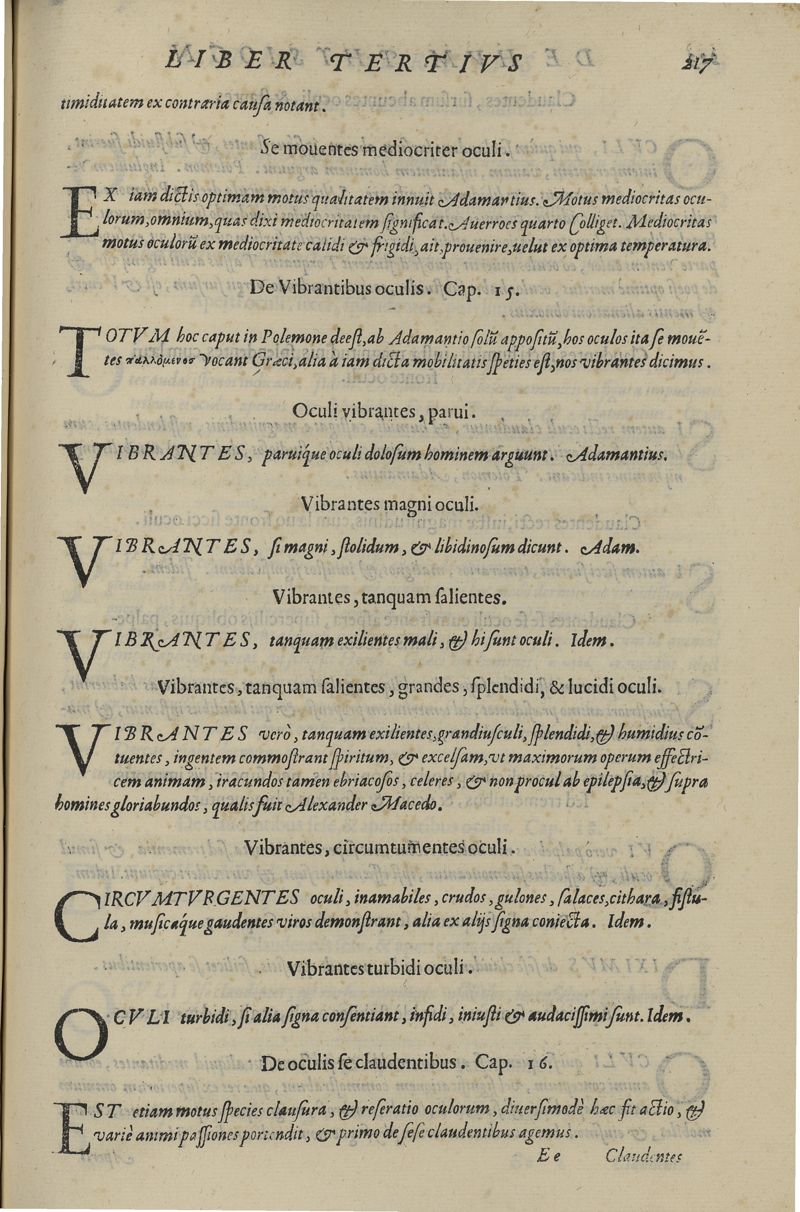 LIBER TERTIVS 217
timiditatem ex contraria causa notant.
Se mouentes mediocriter oculi.
EX iam dictis optimam motus qualitatem innuit Adamantius. Motus mediocritas ocu-
lorum, omnium, quas dixi mediocritatem significat. Auerroes quarto Colliget. Mediocritas
motus oculorũ ex mediocritate calidi & frigidi, ait, prouenire, uelut ex optima temperatura.
De Vibrantibus oculis. Cap. 15.
TOTVM hoc caput in Polemone deest, ab Adamantio solũ appositũ, hos oculos ita se mouẽ-
tes παλλόμενοσ vocant Græci, alia à iam dicta mobilitatis speties est, nos vibrantes dicimus.
Oculi vibrantes, parui.
VIBRANTES, paruíque oculi dolosum hominem arguunt. Adamantius.
Vibrantes magni oculi.
VIBRANTES, si magni, stolidum, & libidinosum dicunt. Adam.
Vibrantes, tanquam salientes.
VIBRANTES, tanquam exilientes mali, & hi sunt oculi. Idem.
Vibrantes, tanquam salientes, grandes, splendidi, & lucidi oculi.
VIBRANTES verò, tanquam exilientes, grandiusculi, splendidi, & humidius cõ-
tuentes, ingentem commostrant spiritum, & excelsam, vt maximorum operum effectri-
cem animam, iracundos tamen ebriacosos, celeres, & non procul ab epilepsia, & supra
homines gloriabundos, qualis fuit Alexander Macedo.
Vibrantes, circumtumentes oculi.
CIRCVMTVRGENTES oculi, inamabiles, crudos, gulones, salaces, cithara, fistu-
la, musicáque gaudentes viros demonstrant, alia ex alijs signa coniecta. Idem.
Vibrantes turbidi oculi.
OCVLI turbidi, si alia signa consentiant, infidi, iniusti & audacissimi sunt. Idem.
De oculis se claudentibus. Cap. 16.
EST etiam motus species clausura, & reseratio oculorum, diuersimodè hæc fit actio, &
variè animi passiones portendit, & primo de sese claudentibus agemus.
Ee Claudentes